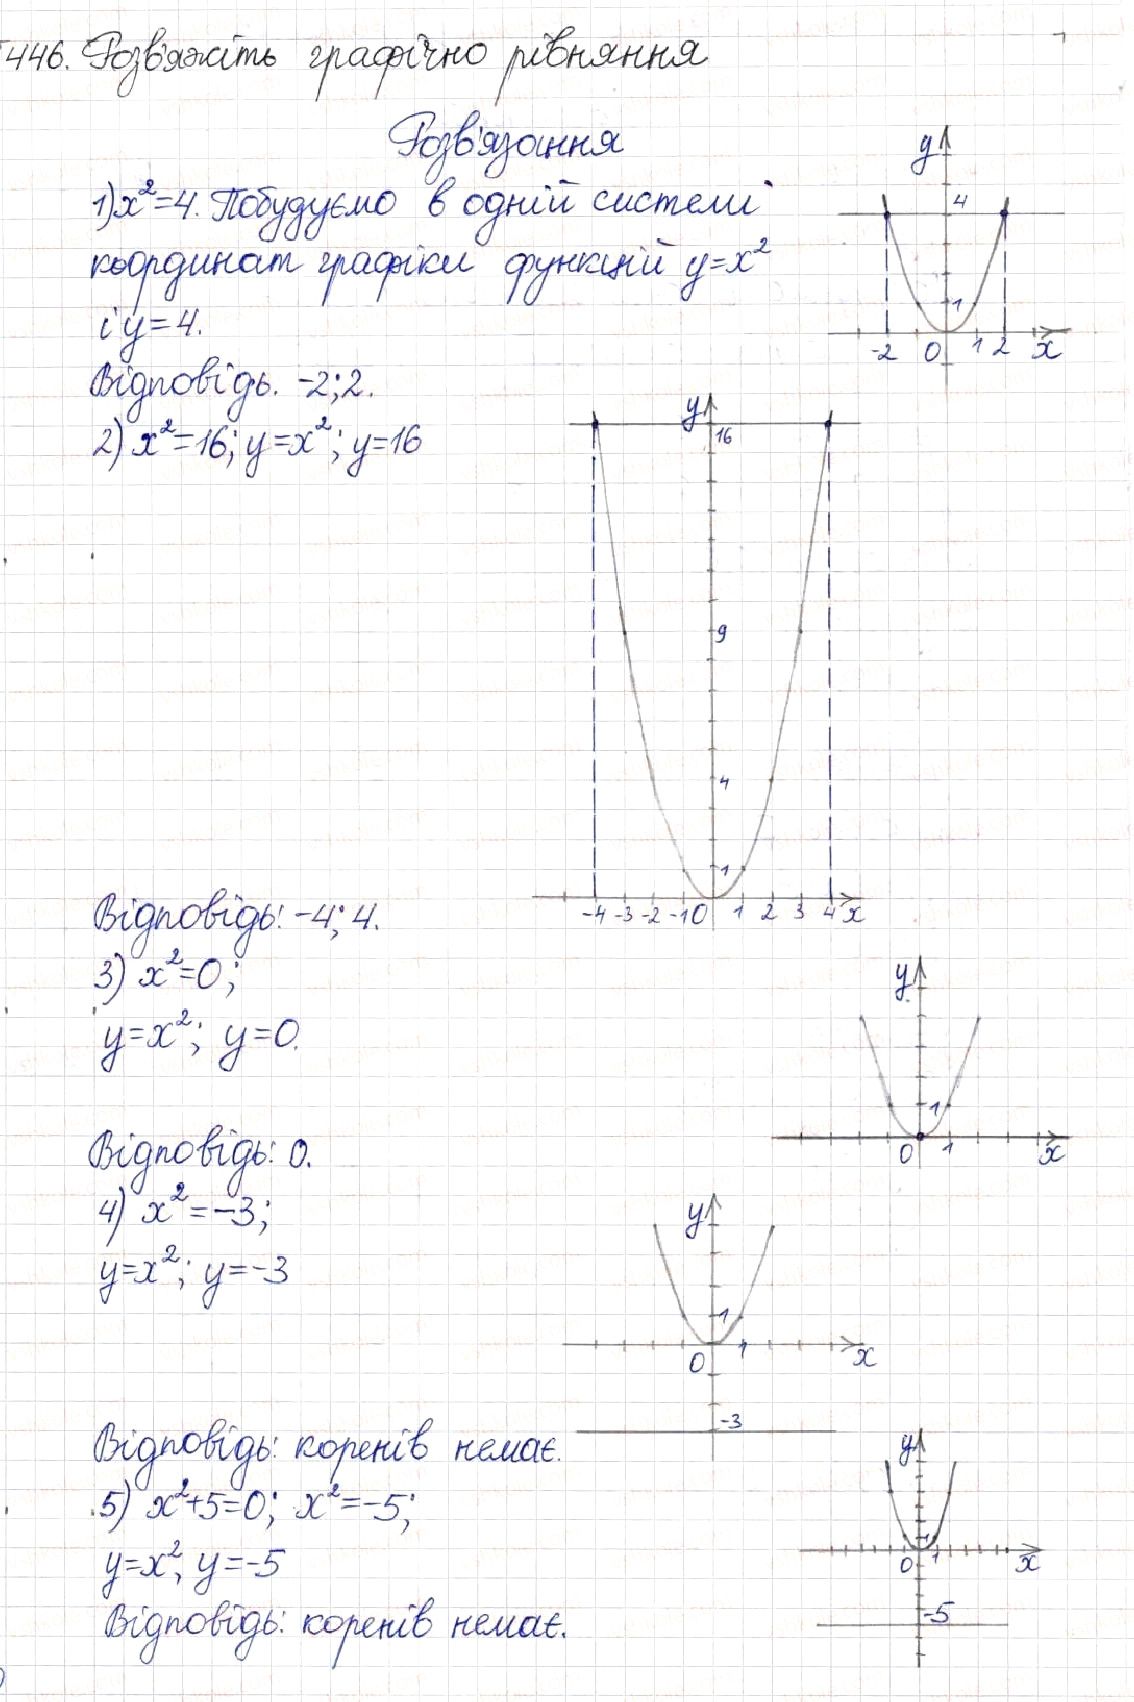 446. Розв'яжіть графічно рівняння
Розв'язання
1) x²=4. Побудуємо в одній системі
координат графіки функцій y=x²
і y=4.
Відповідь. -2; 2.
2) x²=16; y=x²; y=16
Відповідь: -4; 4.
3) x²=0;
y=x²; y=0.
Відповідь: 0.
4) x²=-3;
y=x²; y=-3
Відповідь: коренів немає.
5) x²+5=0; x²=-5;
y=x²; y=-5
Відповідь: коренів немає.
y
4
1
-2 0 1 2 x
y
16
9
4
1
-4 -3 -2 -1 0 1 2 3 4 x
y
1
0 1 x
y
1
0 1 x
-3
y
1
0 1 x
-5